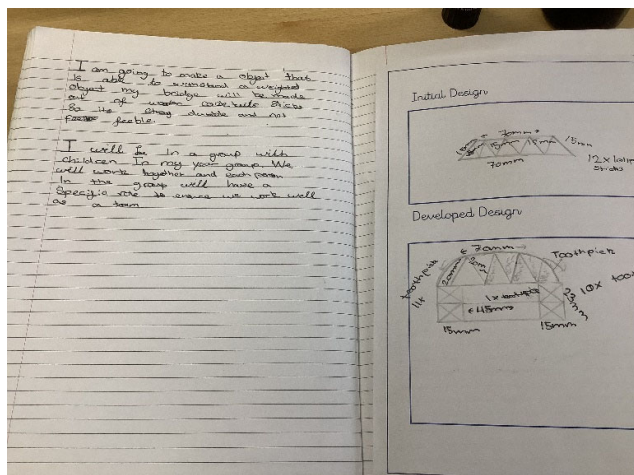 I am going to make a object that
is able to a weighted
object my bridge will be made
out of sticks
So its durable and not
feeble.
I will in a group with
children In my year group. We
will work together and each person
In the group will have a
Specific role to ensure we work well
as a team
Initial Design
70mm
15mm
15mm
15mm
70mm
12 x
Sticks
Developed Design
70mm
Toothpick
toothpick
20mm
1x toothpick
45mm
23mm
10x
15mm
15mm